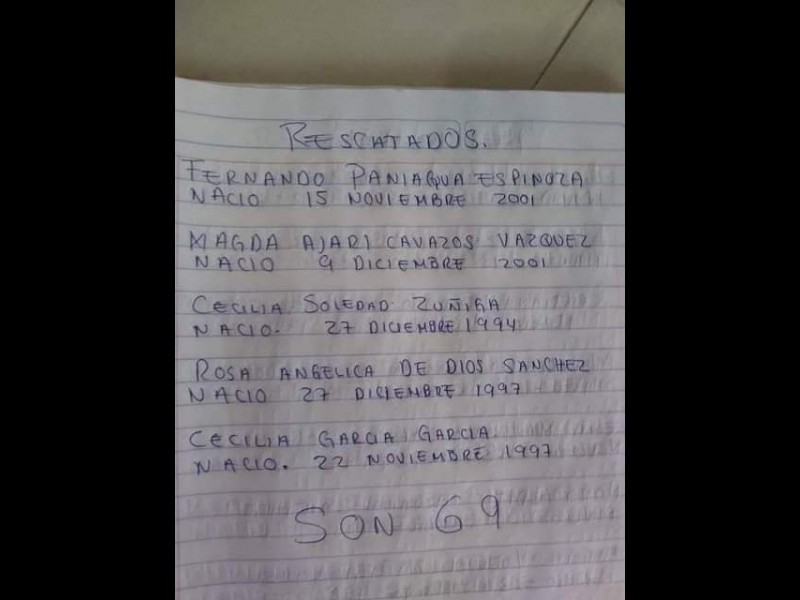 RESCATADOS.
FERNANDO PANIAGUA ESPINOZA
NACIO 15 NOVIEMBRE 2001
MAGDA AJARI CAVAZOS VAZQUEZ
NACIO 9 DICIEMBRE 2001
CECILIA SOLEDAD ZUÑIGA
NACIO. 27 DICIEMBRE 1994
ROSA ANGELICA DE DIOS SANCHEZ
NACIO 27 DICIEMBRE 1997
CECILIA GARCIA GARCIA
NACIO. 22 NOVIEMBRE 1997
SON 69